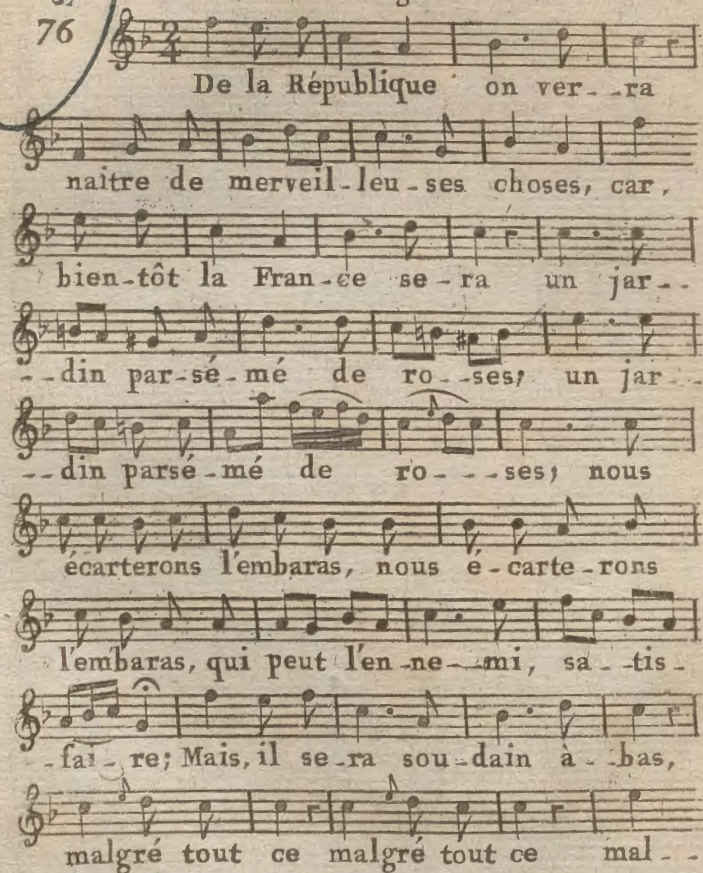 76
De la République on ver--ra
naitre de merveil-leu-ses choses, car,
bien-tôt la Fran-ce se-ra un jar--
--din par-sé-mé de ro--ses; un jar--
--din parsé-mé de ro---ses; nous
écarterons l'embaras, nous é-carte-rons
l'embaras, qui peut l'en-ne--mi, sa--tis-
-fai-re; Mais, il se-ra sou-dain à--bas,
malgré tout ce malgré tout ce mal--